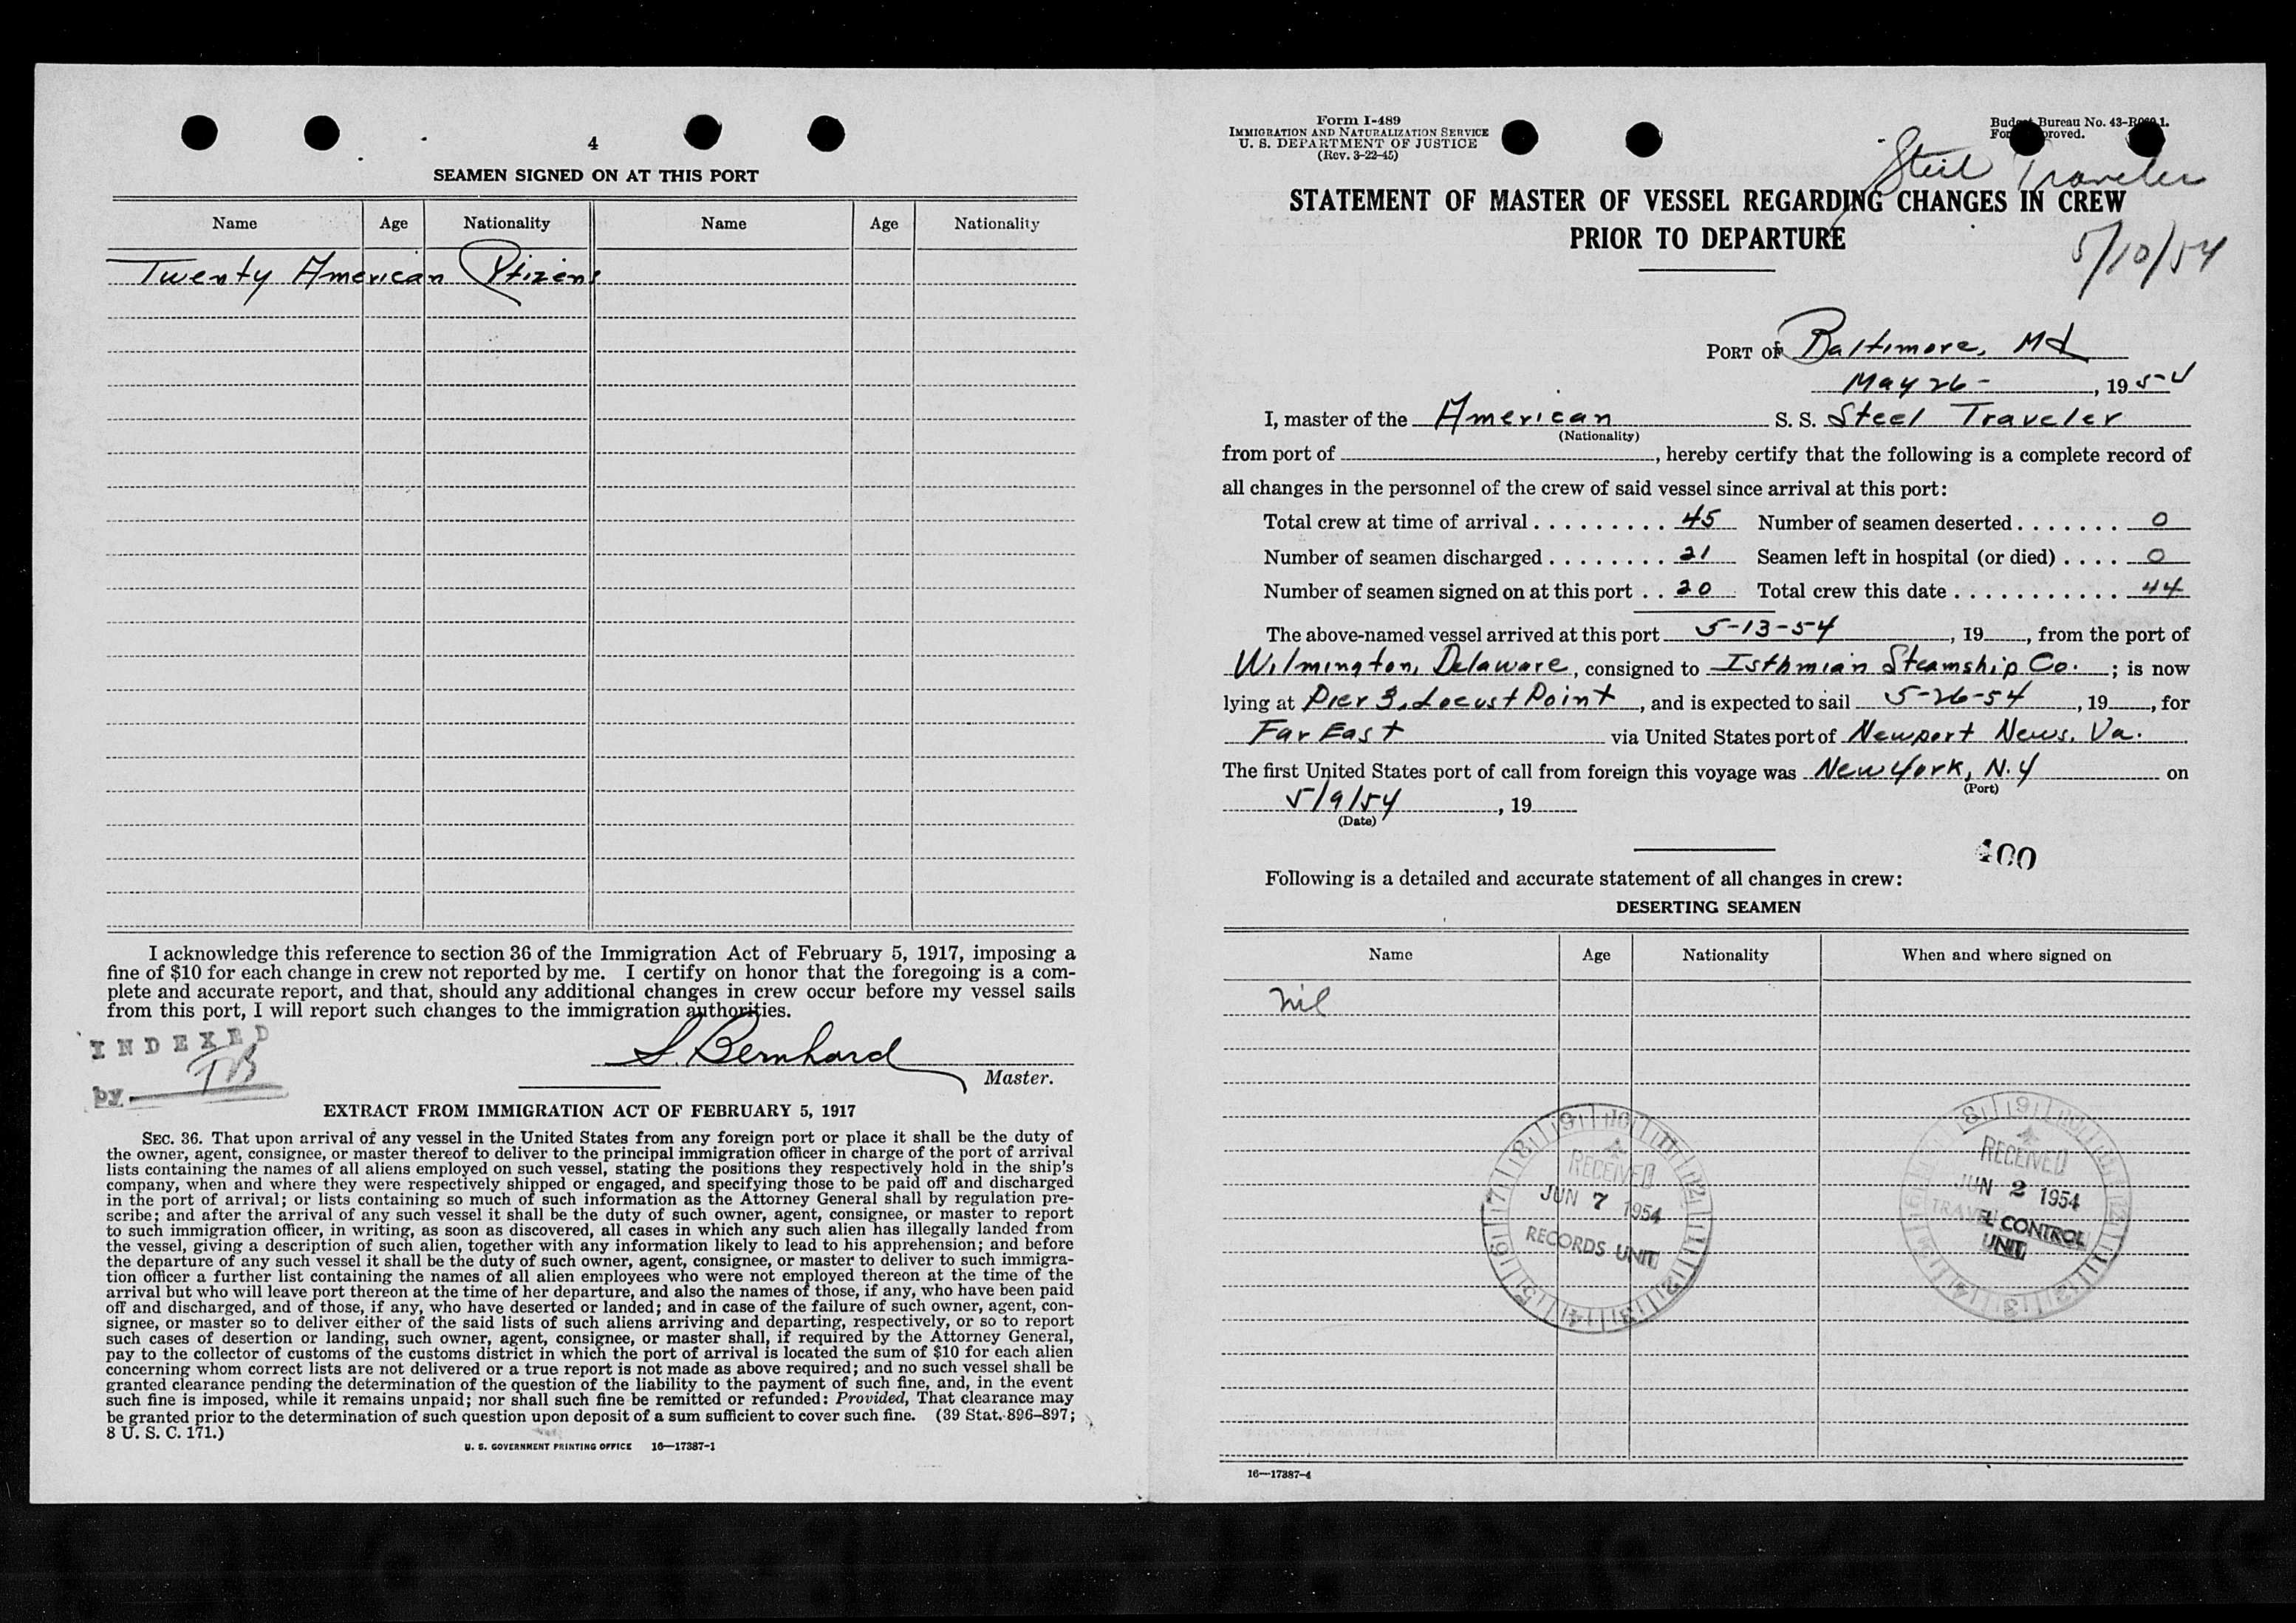 4
SEAMEN SIGNED ON AT THIS PORT
Name Age Nationality Name Age Nationality
Twenty American Citizens
I acknowledge this reference to section 36 of the Immigration Act of February 5, 1917, imposing a
fine of $10 for each change in crew not reported by me. I certify on honor that the foregoing is a com-
plete and accurate report, and that, should any additional changes in crew occur before my vessel sails
from this port, I will report such changes to the immigration authorities.
INDEXED
by TB
S. Bernhard
Master.
EXTRACT FROM IMMIGRATION ACT OF FEBRUARY 5, 1917
SEC. 36. That upon arrival of any vessel in the United States from any foreign port or place it shall be the duty of
the owner, agent, consignee, or master thereof to deliver to the principal immigration officer in charge of the port of arrival
lists containing the names of all aliens employed on such vessel, stating the positions they respectively hold in the ship's
company, when and where they were respectively shipped or engaged, and specifying those to be paid off and discharged
in the port of arrival; or lists containing so much of such information as the Attorney General shall by regulation pre-
scribe; and after the arrival of any such vessel it shall be the duty of such owner, agent, consignee, or master to report
to such immigration officer, in writing, as soon as discovered, all cases in which any such alien has illegally landed from
the vessel, giving a description of such alien, together with any information likely to lead to his apprehension; and before
the departure of any such vessel it shall be the duty of such owner, agent, consignee, or master to deliver to such immigra-
tion officer a further list containing the names of all alien employees who were not employed thereon at the time of the
arrival but who will leave port thereon at the time of her departure, and also the names of those, if any, who have been paid
off and discharged, and of those, if any, who have deserted or landed; and in case of the failure of such owner, agent, con-
signee, or master so to deliver either of the said lists of such aliens arriving and departing, respectively, or so to report
such cases of desertion or landing, such owner, agent, consignee, or master shall, if required by the Attorney General,
pay to the collector of customs of the customs district in which the port of arrival is located the sum of $10 for each alien
concerning whom correct lists are not delivered or a true report is not made as above required; and no such vessel shall be
granted clearance pending the determination of the question of the liability to the payment of such fine, and, in the event
such fine is imposed, while it remains unpaid; nor shall such fine be remitted or refunded: Provided, That clearance may
be granted prior to the determination of such question upon deposit of a sum sufficient to cover such fine. (39 Stat. 896-897;
8 U. S. C. 171.)
U. S. GOVERNMENT PRINTING OFFICE 16—17387-1
Form I-489
IMMIGRATION AND NATURALIZATION SERVICE
U. S. DEPARTMENT OF JUSTICE
(Rev. 3-22-45)
Budget Bureau No. 43-R
Steel Traveler
STATEMENT OF MASTER OF VESSEL REGARDING CHANGES IN CREW
PRIOR TO DEPARTURE
5/10/54
PORT OF Baltimore, Md
May 26 - , 1954
I, master of the American S. S. Steel Traveler
(Nationality)
from port of , hereby certify that the following is a complete record of
all changes in the personnel of the crew of said vessel since arrival at this port:
Total crew at time of arrival . . . . . . . . . 45 Number of seamen deserted . . . . . . . 0
Number of seamen discharged . . . . . . . . 21 Seamen left in hospital (or died) . . . . 0
Number of seamen signed on at this port . . 20 Total crew this date . . . . . . . . . . . 44
The above-named vessel arrived at this port 5-13-54 , 19 , from the port of
Wilmington, Delaware, consigned to Isthmian Steamship Co. ; is now
lying at Pier 3, Locust Point , and is expected to sail 5-26-54 , 19 , for
Far East via United States port of Newport News, Va.
The first United States port of call from foreign this voyage was New York, N.Y on
(Port)
5/9/54 , 19
(Date)
400
Following is a detailed and accurate statement of all changes in crew:
DESERTING SEAMEN
Name Age Nationality When and where signed on
nil
RECEIVED
JUN 7 1954
RECORDS UNIT
RECEIVED
JUN 2 1954
TRAVEL CONTROL
UNIT
16—17387-4